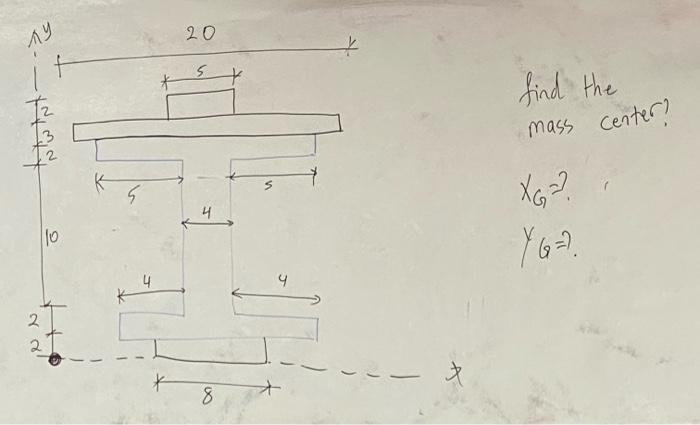 y
20
5
2
3
2
5
5
4
10
4
4
2
2
8
x
find the
mass center?
XG=?
YG=?.